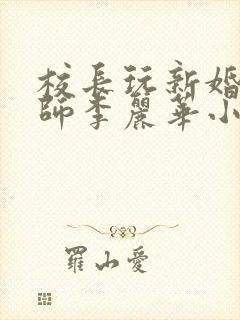 校長玩新婚
師李麗華小
羅山愛